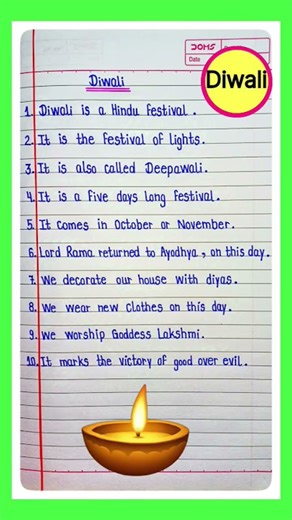 DOMS
Date
Diwali
Diwali
1. Diwali is a Hindu festival.
2. It is the festival of lights.
3. It is also called Deepawali.
4. It is a five days long festival.
5. It comes in October or November.
6. Lord Rama returned to Ayodhya, on this day.
7. We decorate our house with diyas.
8. We wear new clothes on this day.
9. We worship Goddess Lakshmi.
10. It marks the victory of good over evil.